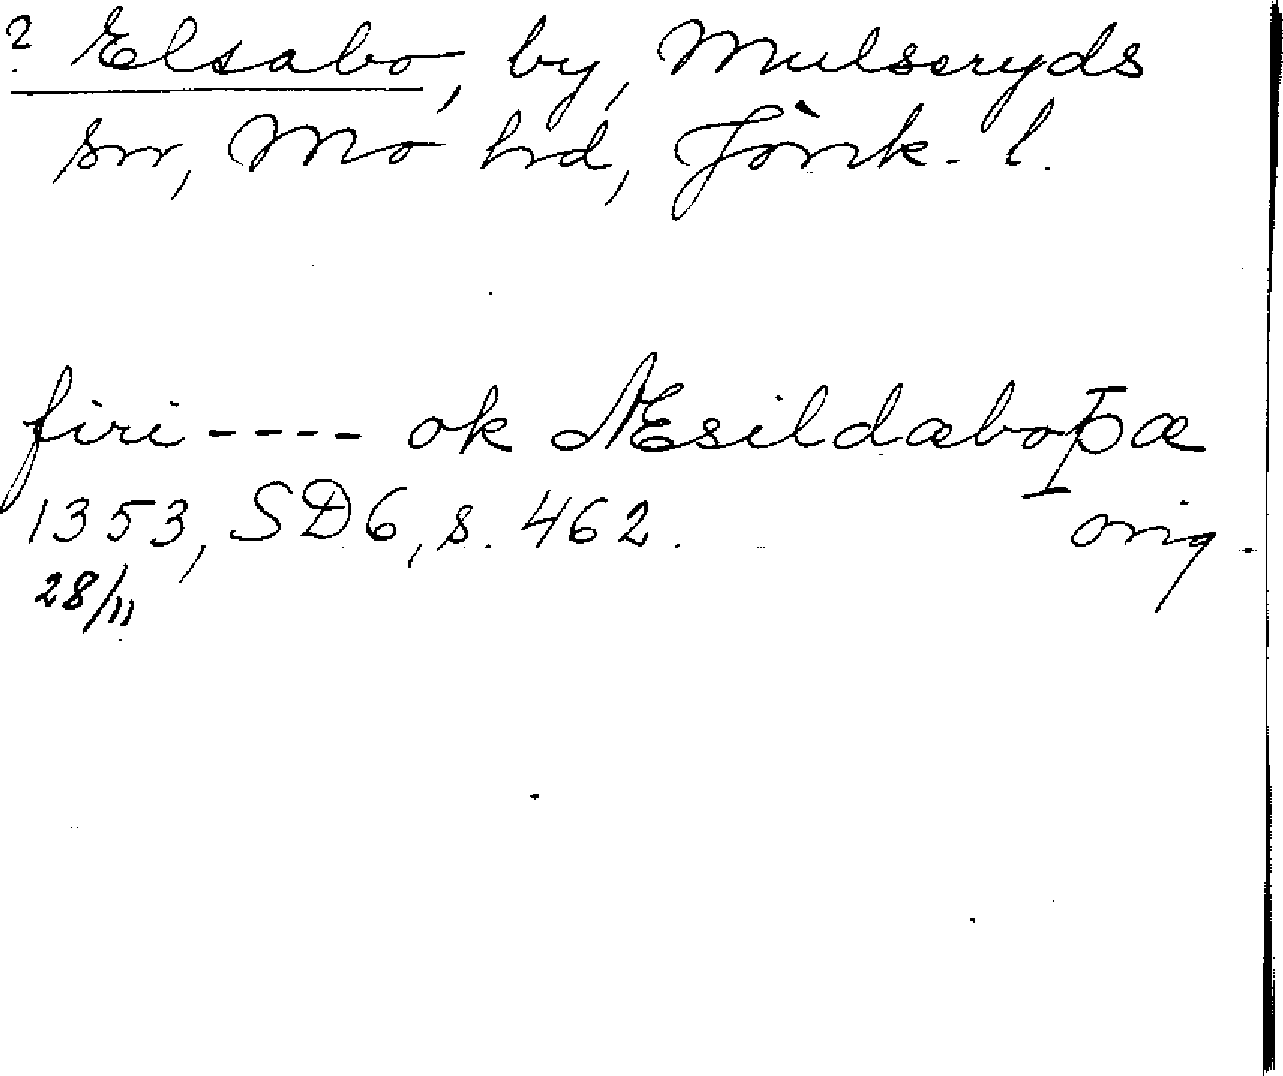 ? Elsabo, by, Mulseryds
sn, Mo hd, Jönk. l.
firi ---- ok Æsildæboþæ
1353, SD6, s. 462. orig.
28/11